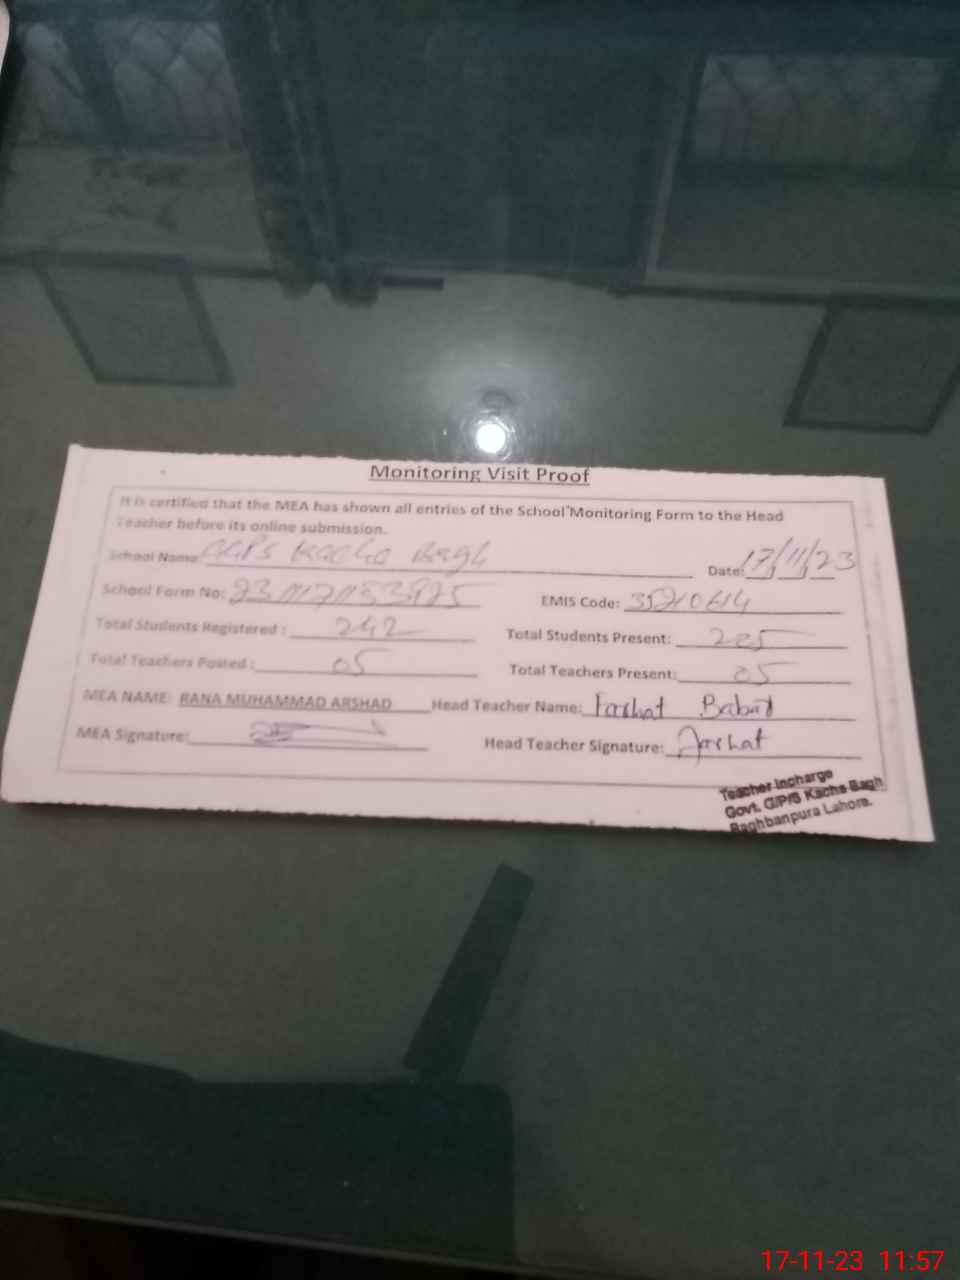 Monitoring Visit Proof
It is certified that the MEA has shown all entries of the School Monitoring Form to the Head
Teacher before its online submission.
School Name: GGPS Kacha Bagh Date: 17/11/23
School Form No: EMIS Code: 35210614
Total Students Registered : 242 Total Students Present: 205
Total Teachers Posted : 05 Total Teachers Present: 05
MEA NAME: RANA MUHAMMAD ARSHAD Head Teacher Name: Farhat
MEA Signature: Head Teacher Signature: Farhat
Teacher Incharge
Govt. G/P/S Kacha Bagh
Baghbanpura Lahore.
17-11-23 11:57